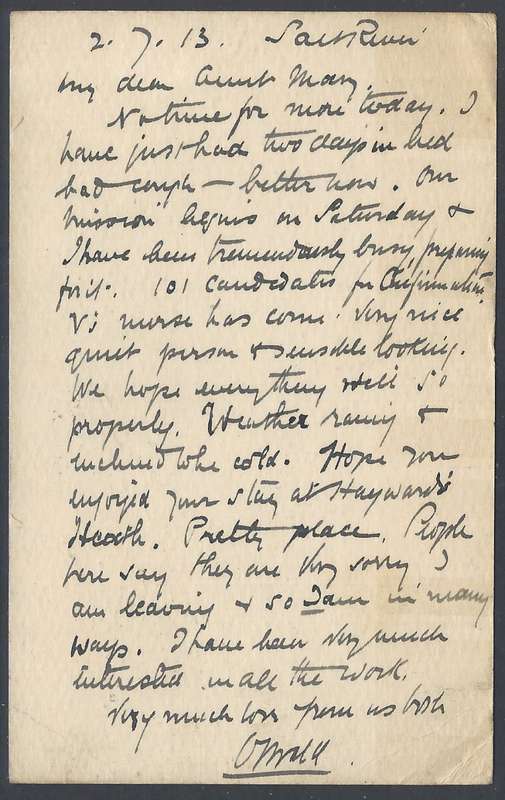 2. 7. 13. Salt River
My dear Aunt Mary,
No time for more today. I
have just had two days in bed
bad cough — better now. Our
mission begins on Saturday &
I have been tremendously busy preparing
for it. 101 candidates for Confirmation.
V's nurse has come. Very nice
quiet person & sensible looking.
We hope everything will go
properly. Weather rainy &
inclined to be cold. Hope you
enjoyed your stay at Haywards
Heath. Pretty place. People
here say they are very sorry I
am leaving & so I am in many
ways. I have been very much
interested in all the work.
Very much love from us both